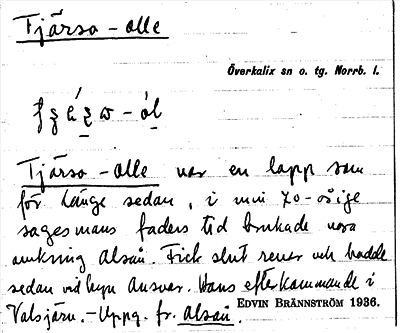 Fjärso-olle
Överkalix sn o. tg. Norrb. l.
Fjärso-olle var en lapp som
för länge sedan, i min 70-årige
sagesmans faders tid brukade vara
omkring Alsån. Fick slut renar och hadde
sedan vid byn Ansvar. Hans efterkommande i
Valsjärv.-Uppg. fr. Alsån.
EDVIN BRÄNNSTRÖM 1936.